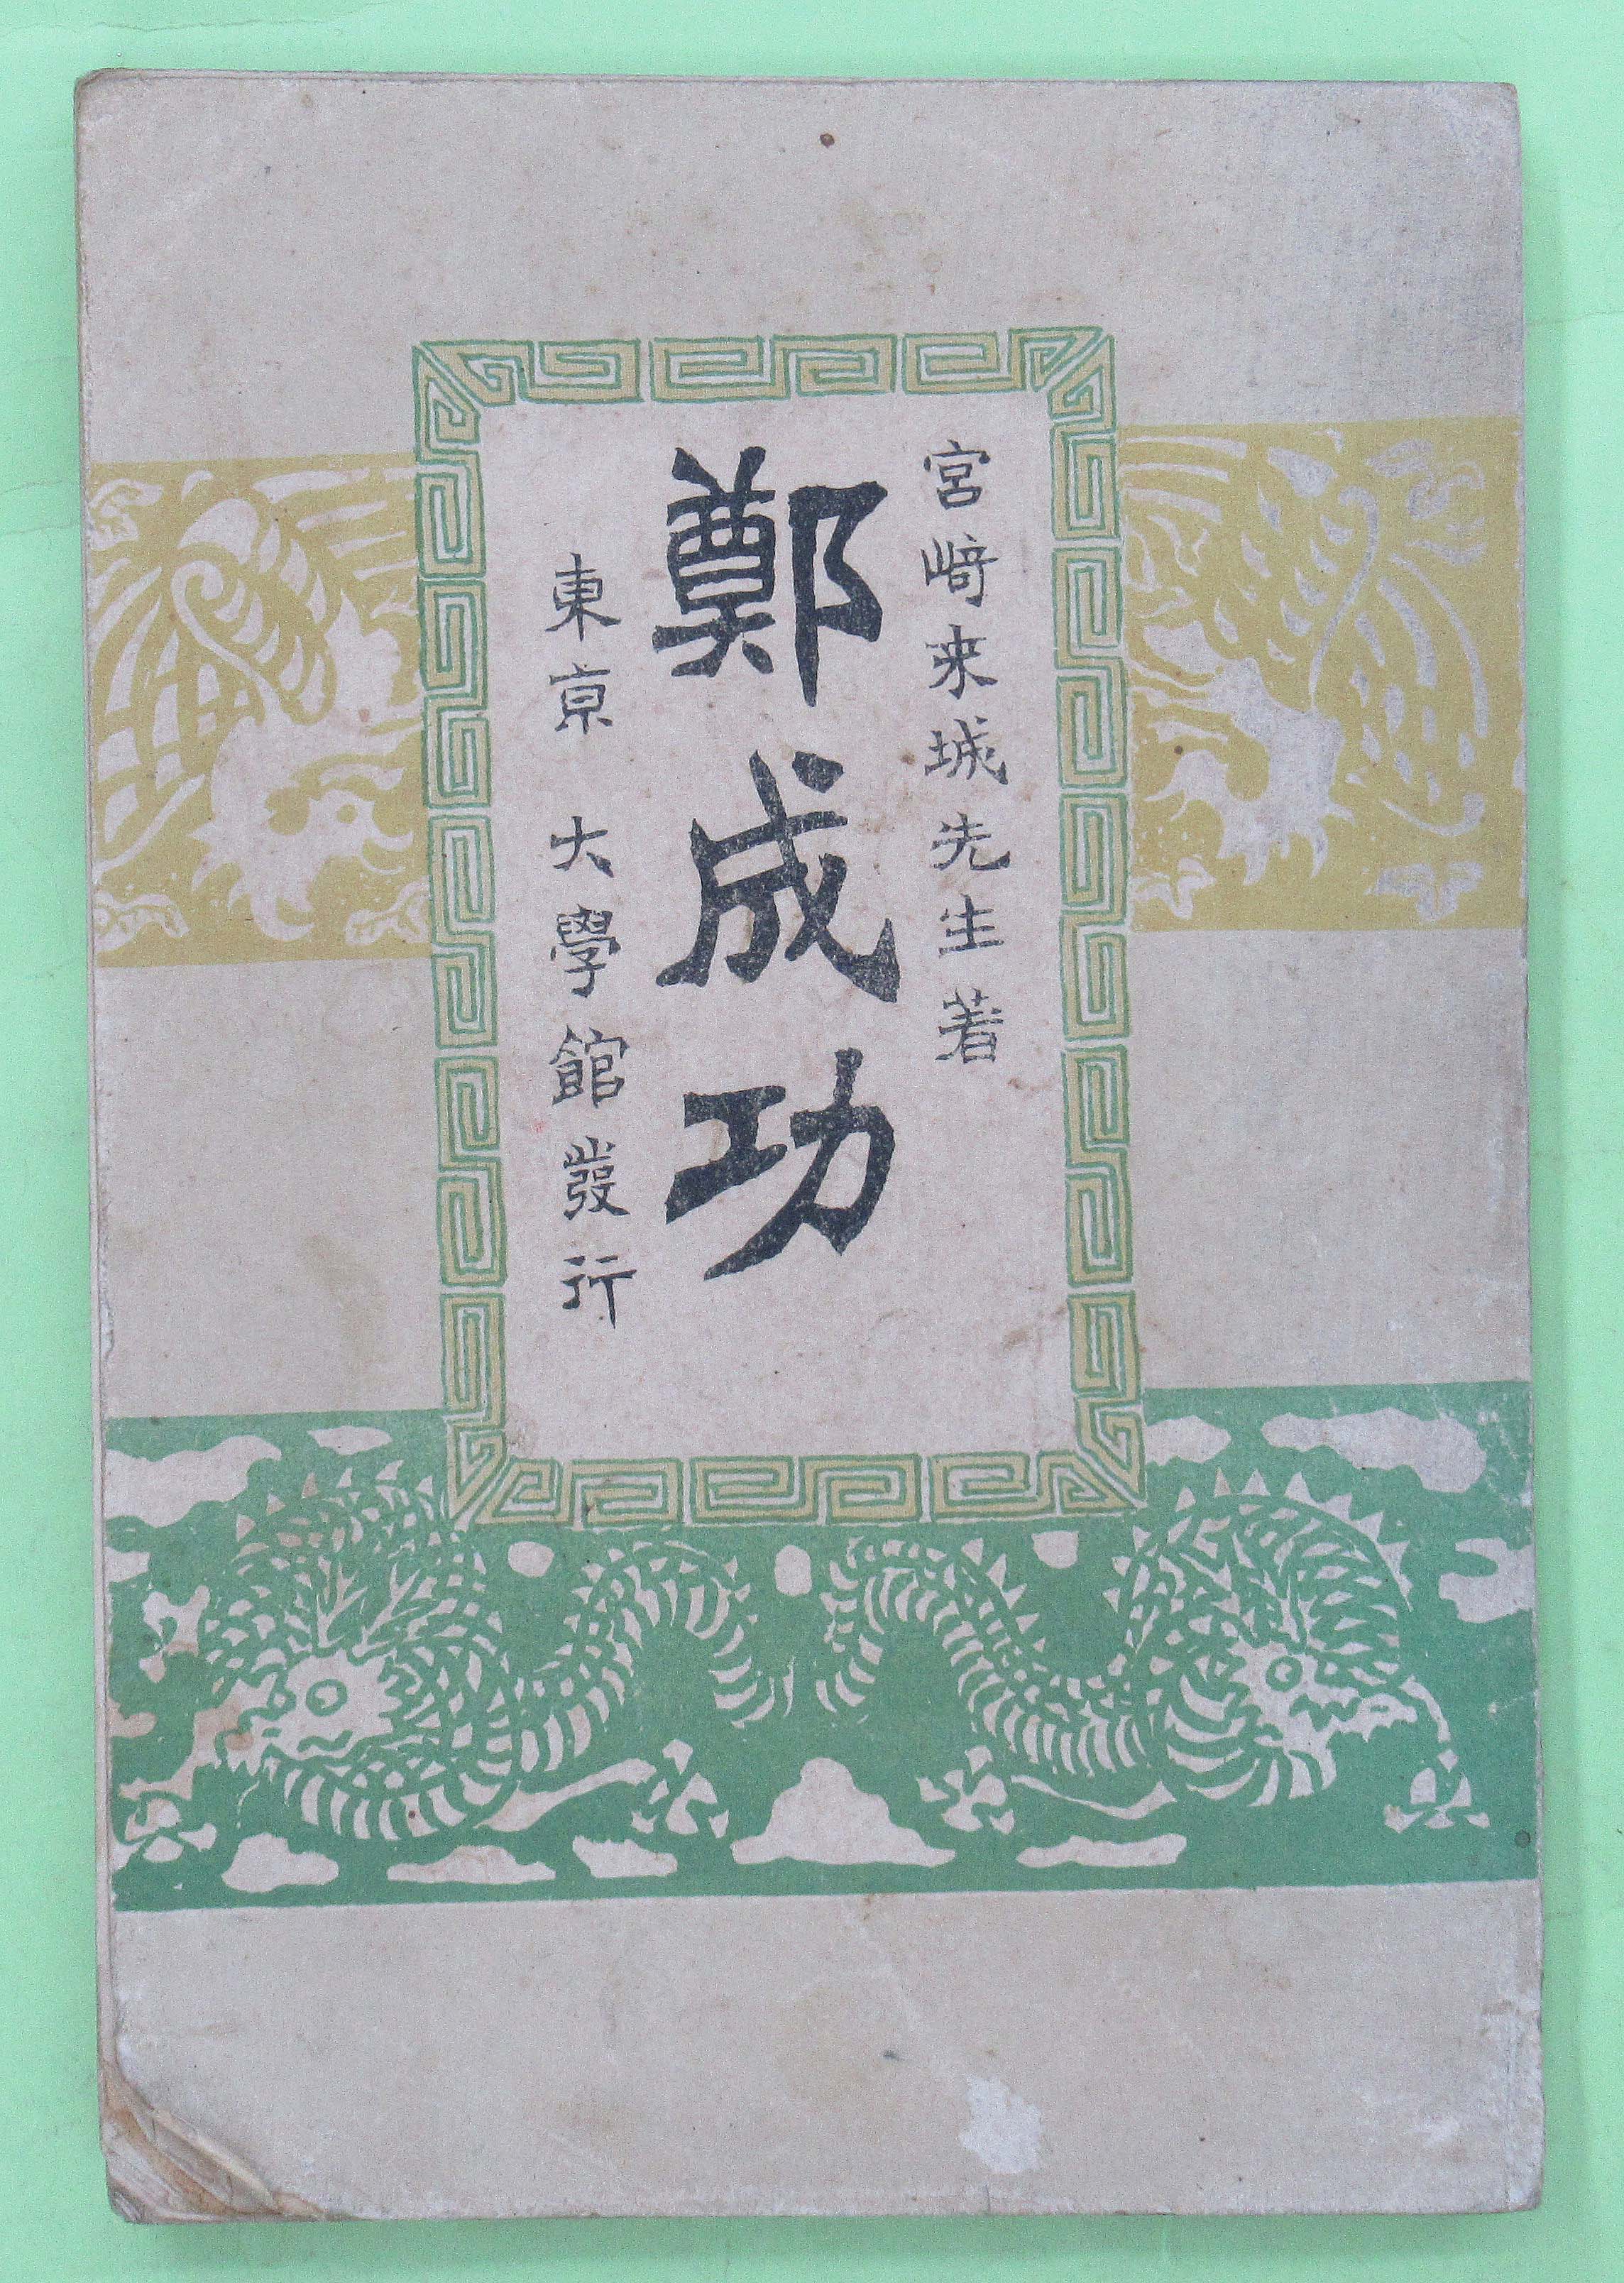 宮﨑来城先生著
鄭成功
東京 大學館發行